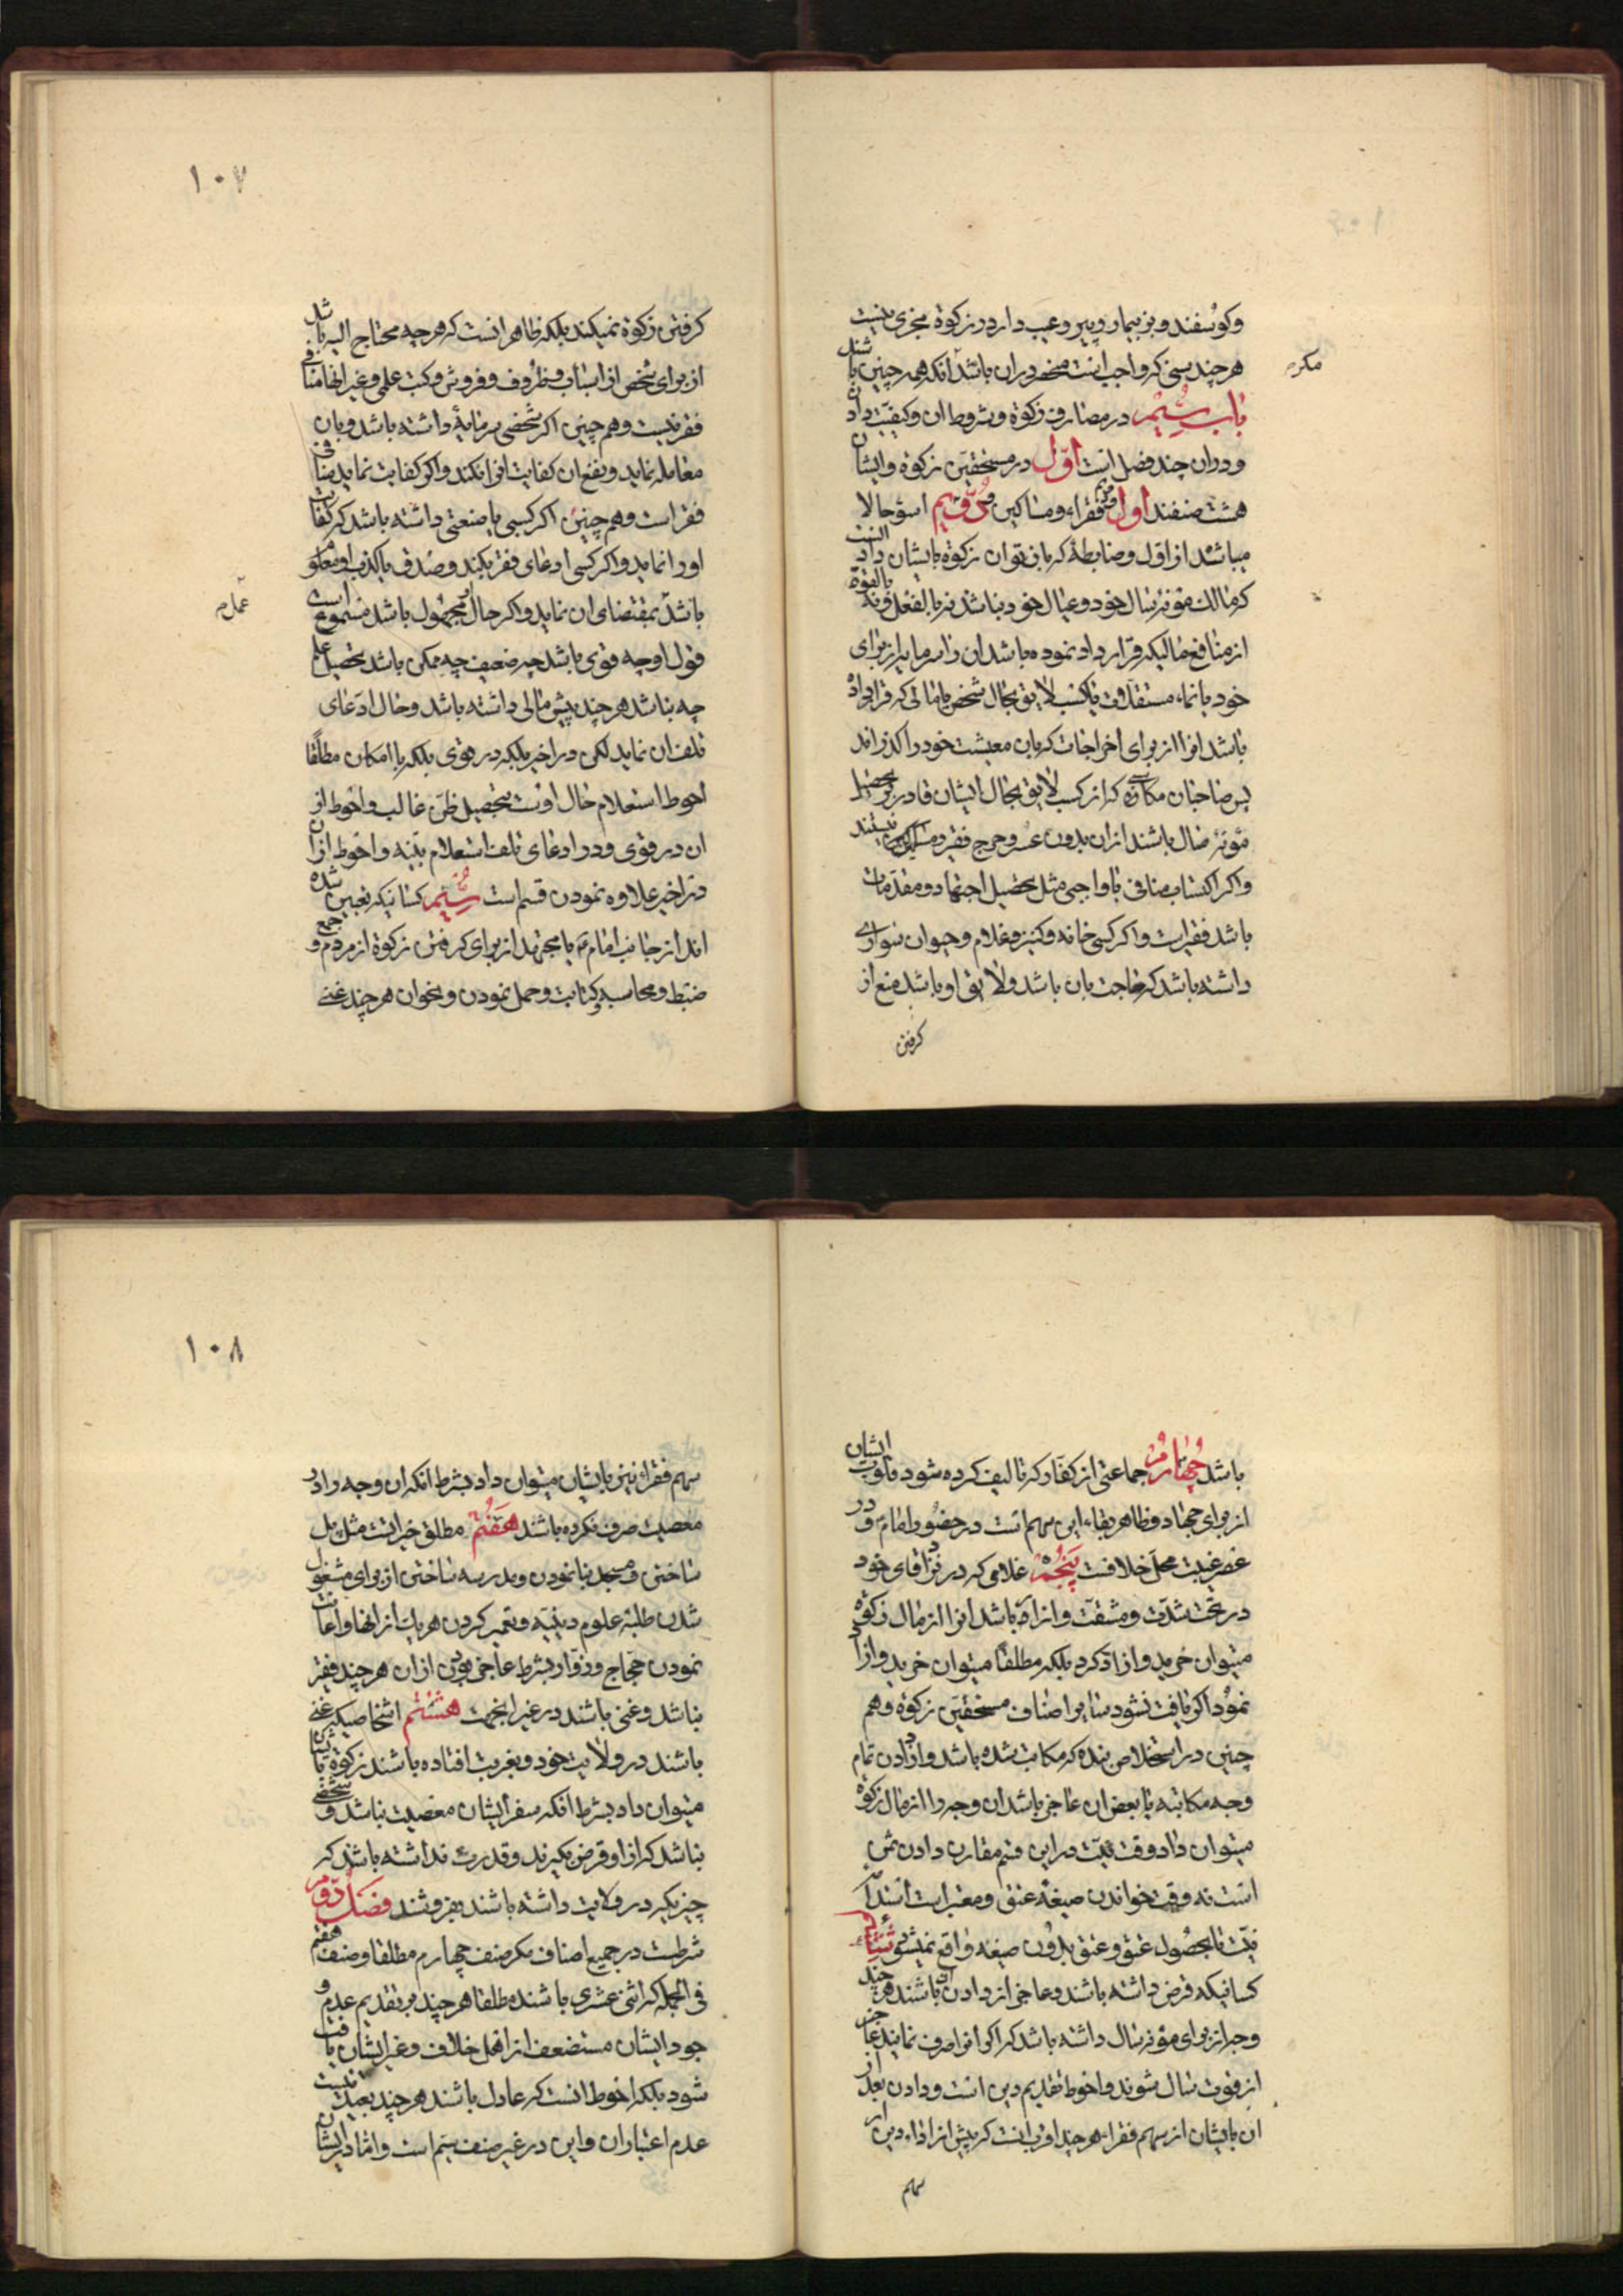 وکوسفند و بز بیمار و پیر و عیب دار در زکوة مجزی نیست
هر چند بسنی که واجب است منحصر در ان باشد انکه همه چنین باشند
مکر
باب سیم در مصارف زکوة و شروط ان و کیفیت دادن
و در ان چند فصل است اول در مستحقین زکوة و ایشان
هشت صنفند اول و دویم فقراء و مساکین و دویم اسوء حالا
میباشد از اول و ضابطهٔ که بان توان زکوة بایشان داد انست
که مالک مؤنهٔ سال خود و عیال خود نباشد نه بالفعل و نه بالقوة
از منافع مالیکه قرار داد نموده باشد ان را سرمایه از برای
خود یا نماء مستقلات یا کسب لایق بحال شخص یا مالی که قرار داده
باشد انرا از برای اخراجات که بان معیشت خود را کذراند
پس صاحبان مکاره که از کسب لایق بحال ایشان قادر بر تحصیل
مؤنهٔ سال باشند از ان بدون عسر و حرج فقیر و مسکین نیستند
و اکر اکتساب منافی با واجبی مثل تحصیل اجتهاد و مقدمات
باشد فقیر است و اکر کسی خانه و کنیز و غلام و حیوان سواری
داشته باشد که حاجت بان باشد و لایق او باشد منع از
کرفتن
۱۰۷
کرفتن زکوة نمیکند بلکه ظاهر انست که هر چه محتاج الیه باشد
از برای شخص از اسباب و ظروف و فروش و کتب علمی و غیر انها منافی
فقر نیست و هم چنین اکر شخصی سرمایهٔ داشته باشد و بان
معامله نماید و نفع ان کفایت او را نکند و اکر کفایت نماید منافی
فقر است و هم چنین اکر کسی یا صنعتی داشته باشد که کفایت
او را نماید و اکر کسی ادعای فقر بکند و صدق یا کذب او معلوم
باشد بمقتضای ان نماید و اکر حال او مجهول باشد مسموع است
قول او چه قوی باشد چه ضعیف چه ممکن باشد تحصیل علم
چه نباشد هر چند پیش مالی داشته باشد و حال ادعای
تلف ان نماید لکن در اخیر بلکه در قوی بلکه با امکان مطلقا
احوط استعلام حال اوست بتحصیل ظن غالب و احوط از
ان در قوی و در ادعای تلف استعلام ببینه و احوط از ان
در اخیر علاوه نمودن قسم است سیم کسانیکه تعیین شده
اند از جانب امام یا مجتهد از برای کرفتن زکوة از مردم و جمع
ضبط و محاسبه و کتابت و حمل نمودن و نحو ان هر چند غنی
باشد چهارم جماعتی از کفار که تالیف کرده شود قلوب ایشان
از برای جهاد و ظاهر بقاء این سهم است در حضور امام و در
عصر غیبت محل خلافست پنجم غلامی که در نزد اقای خود
در تحت شدت و مشقت و ازاء باشد انرا از مال زکوة
میتوان خرید و ازاد کرد بلکه مطلقا میتوان خرید و ازاد
نمود اکر یافت نشود سایر اصناف مستحقین زکوة و هم
چنین در استخلاص بنده که مکاتب شده باشد و از دادن تمام
وجه مکاتبه یا بعض ان عاجز باشد ان وجه را از مال زکوة
میتوان داد و وقت نیت در این قسم مقارن دادن ثمن
است نه وقت خواندن صیغهٔ عتق و معتبر است استدامهٔ
نیت تا بحصول عتق و عتق بدون صیغه واقع نمیشود ششم
کسانیکه قرض داشته باشند و عاجز از دادن ان باشند هر چند
وجه از برای مؤنهٔ سال داشته باشد که اکر انرا صرف نمایند عاجز
از قوت سال شوند و احوط تقدیم دین است و دادن بعد از
ان بایشان از سهم فقراء هر چند اقرب انست که پیش از اداء دین از
سهم
۱۰۸
سهم فقراء نیز بایشان میتوان داد بشرط انکه ان وجه را در
معصیت صرف نکرده باشند هفتم مطلق خیراتست مثل پل
ساختن و مسجد بنا نمودن و مدرسه ساختن از برای مشغول
شدن طلبهٔ علوم دینیه و تعمیر کردن هر یک از انها و اعانت
نمودن حجاج و زوار بشرط عاجز بودن از ان هر چند فقیر
نباشد و غنی باشند در غیر انجهت هشتم اشخاصیکه غنی
باشند در ولایت خود و بغربت افتاده باشند زکوة بایشان
میتوان داد بشرط انکه سفر ایشان معصیت نباشد و شخصی
نباشد که از او قرض بکیرند و قدرت نداشته باشند که
چیزیکه در ولایت داشته باشند بفروشند فصل دوم
شرطست در جمیع اصناف مکر صنف چهارم مطلقا و صنف هفتم
فی الجمله که اثنی عشری باشند مطلقا هر چند بر تقدیم عدم و
جود ایشان مستضعف از اهل خلاف و غیر ایشان یافت
شود بلکه احوط انست که عادل باشند هر چند بعید نیست
عدم اعتبار ان و این در غیر صنف سیم است و اما در ایشان